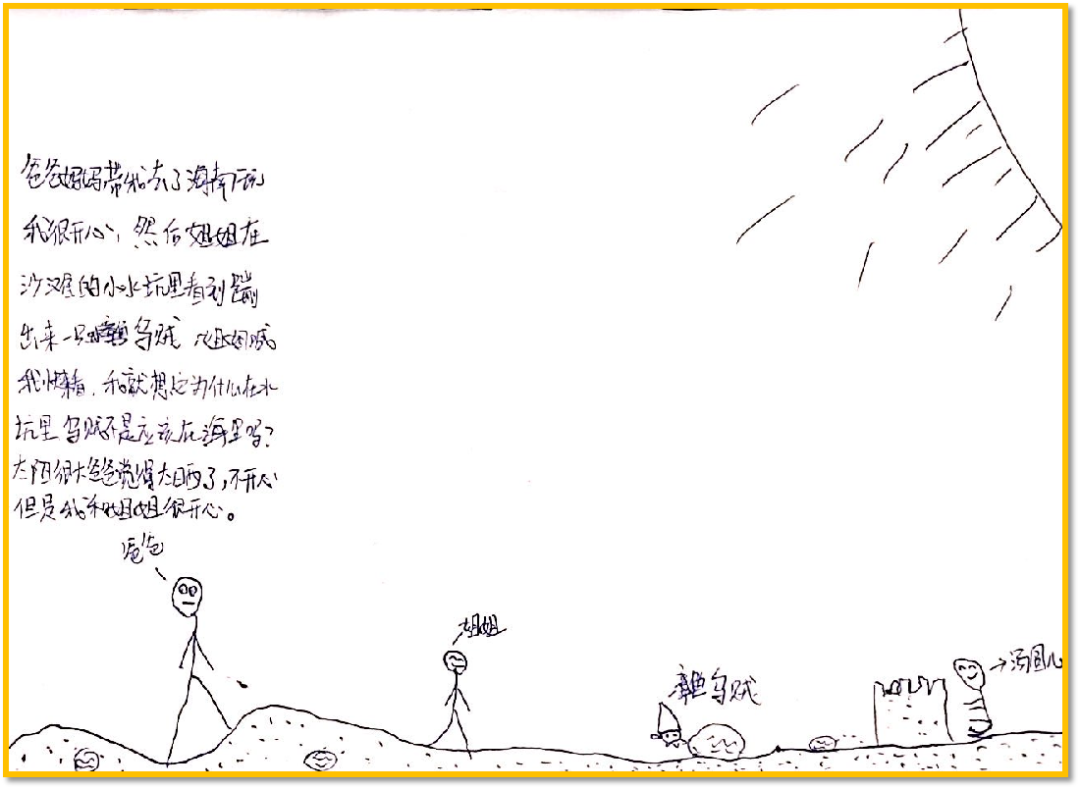 爸爸妈妈带我去了海南玩
我很开心，然后姐姐在
沙滩的小水坑里看到蹦
出来一只章鱼乌贼 姐姐喊
我快来看，我就想它为什么在水
坑里乌贼不是应该在海里吗?
太阳很大爸爸觉得太晒了,不开心
但是我和姐姐很开心。
爸爸
姐姐
章鱼乌贼
汤圆儿